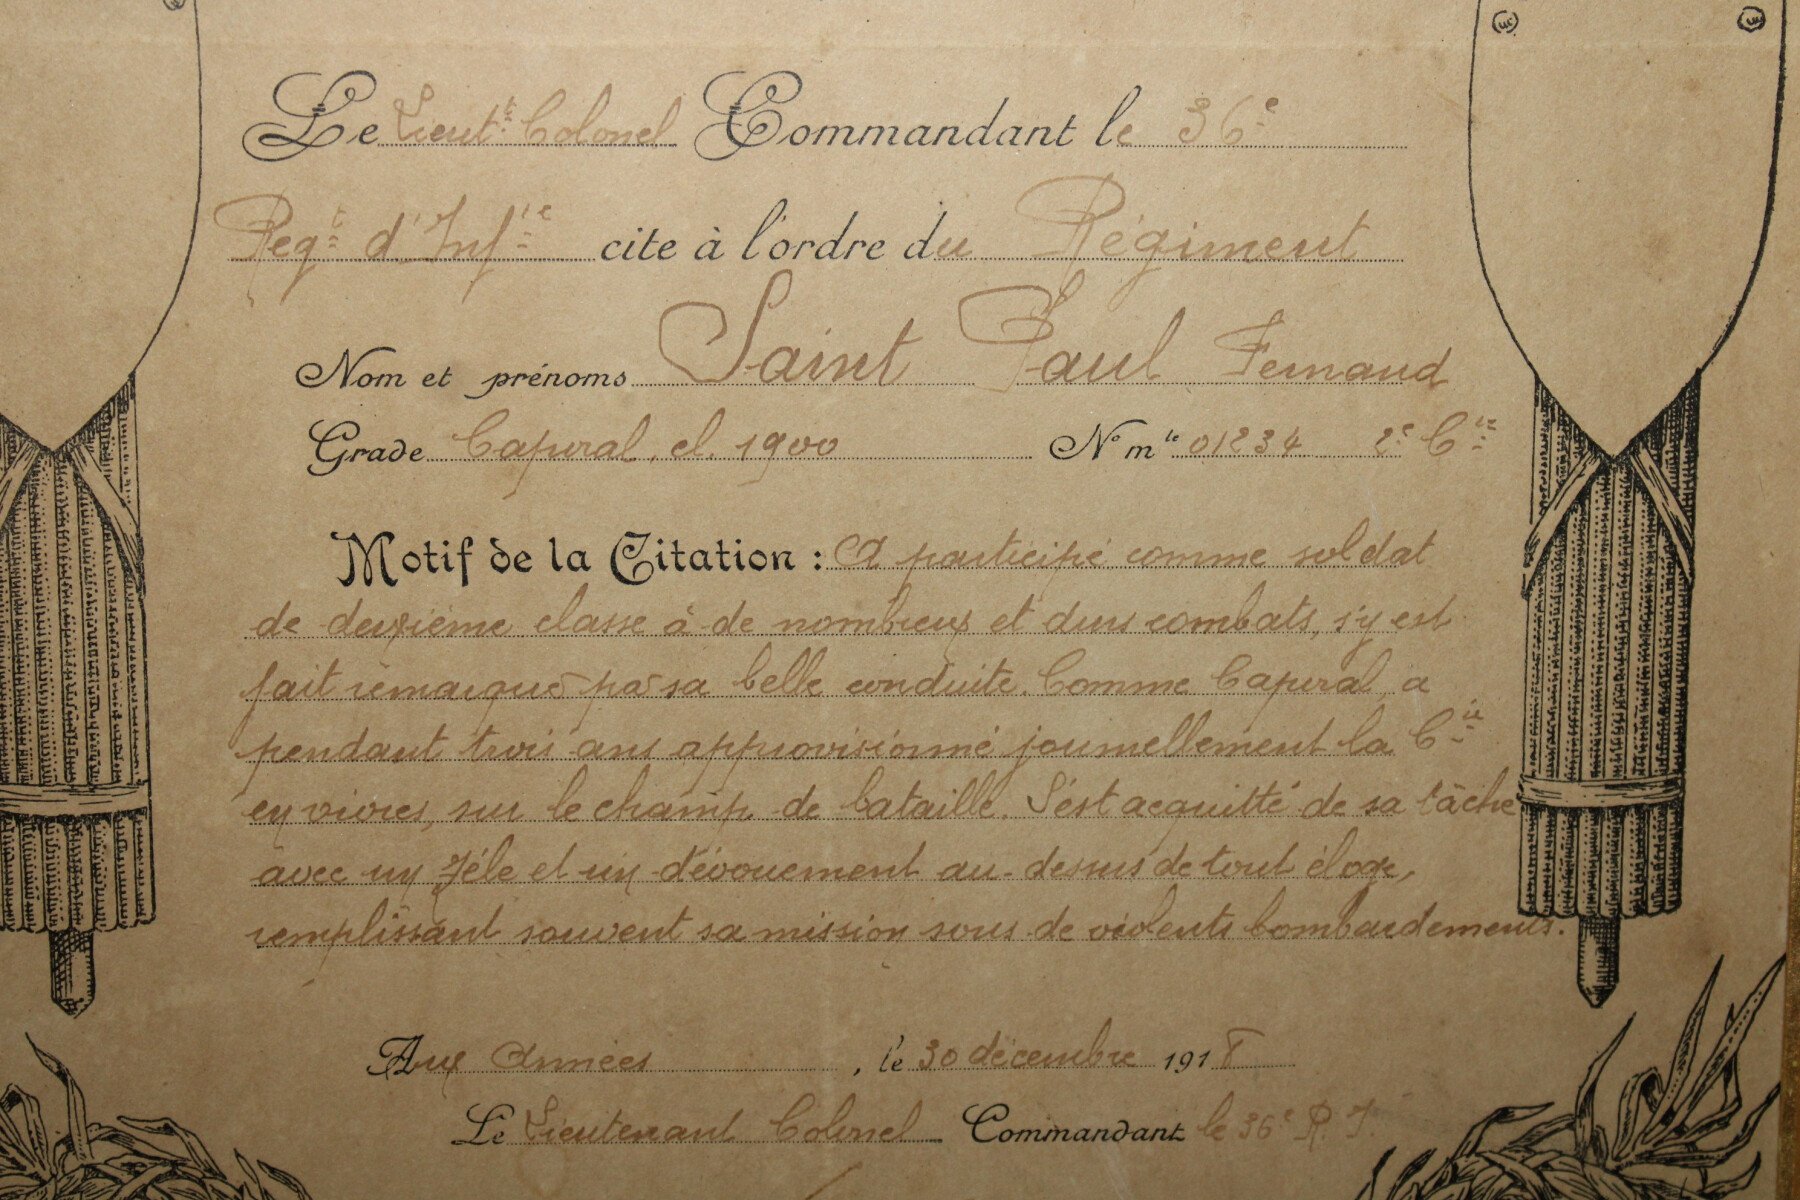 Le Lieut.t Colonel Commandant le 36e
Regt d'Infie cite à l'ordre du Régiment
Nom et prénoms Saint Paul Fernand
Grade Caporal, cl. 1900 No mle 01234 2e Cie
Motif de la Citation : A participé comme soldat
de deuxième classe à de nombreux et durs combats, s'y est
fait remarqué par sa belle conduite. Comme Caporal, a
pendant trois ans approvisionné journellement la Cie
en vivres, sur le champ de bataille. S'est acquitté de sa tâche
avec un zéle et un dévouement au-dessus de tout éloge,
remplissant souvent sa mission sous de violents bombardements.
Aux Armées, le 30 décembre 1918
Le Lieutenant Colonel Commandant le 36e R.I.